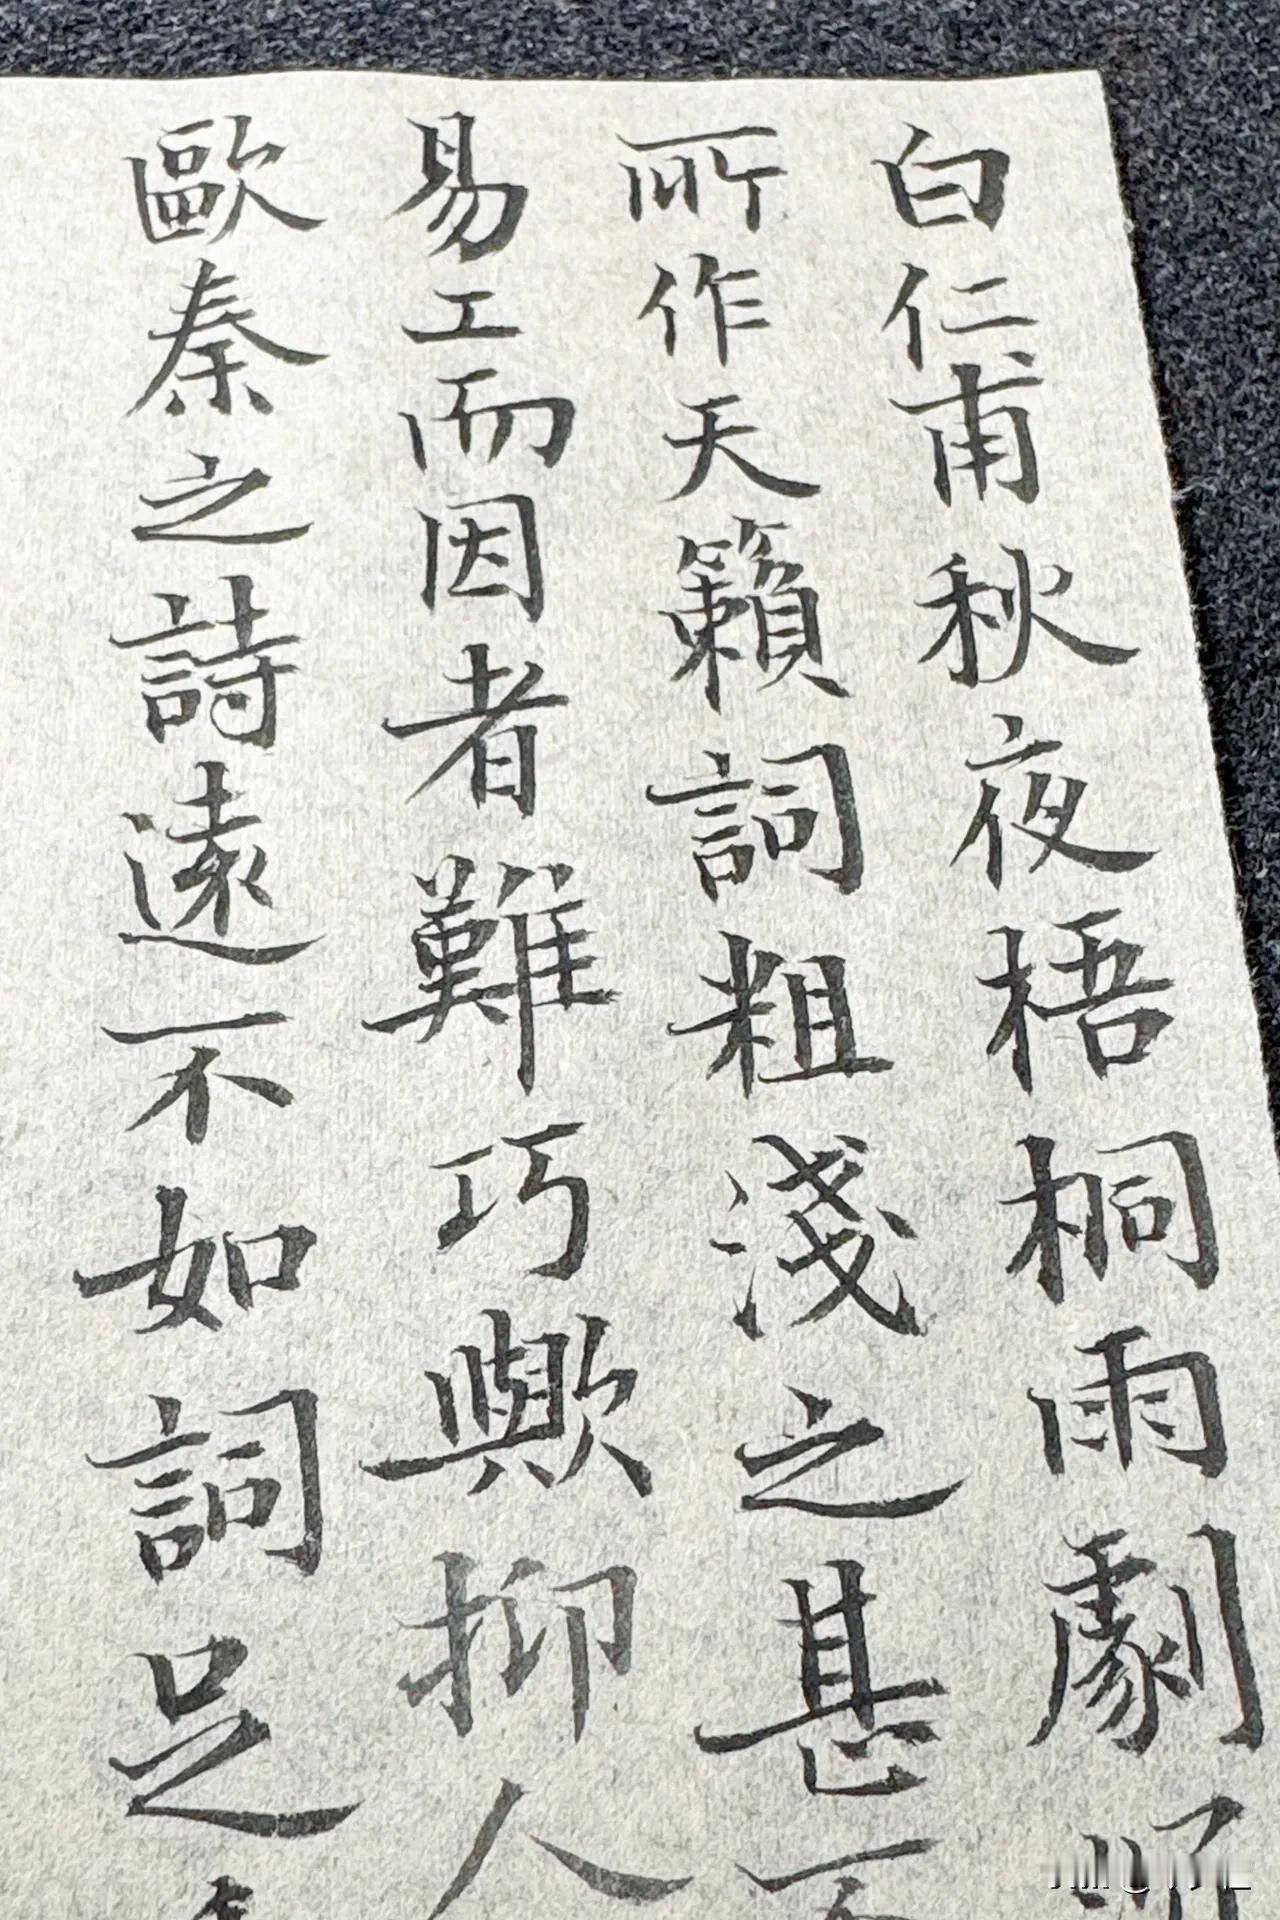 白仁甫秋夜梧桐雨劇
所作天籟詞粗淺之甚不
易工而因者難巧歟抑人
歐秦之詩遠不如詞足